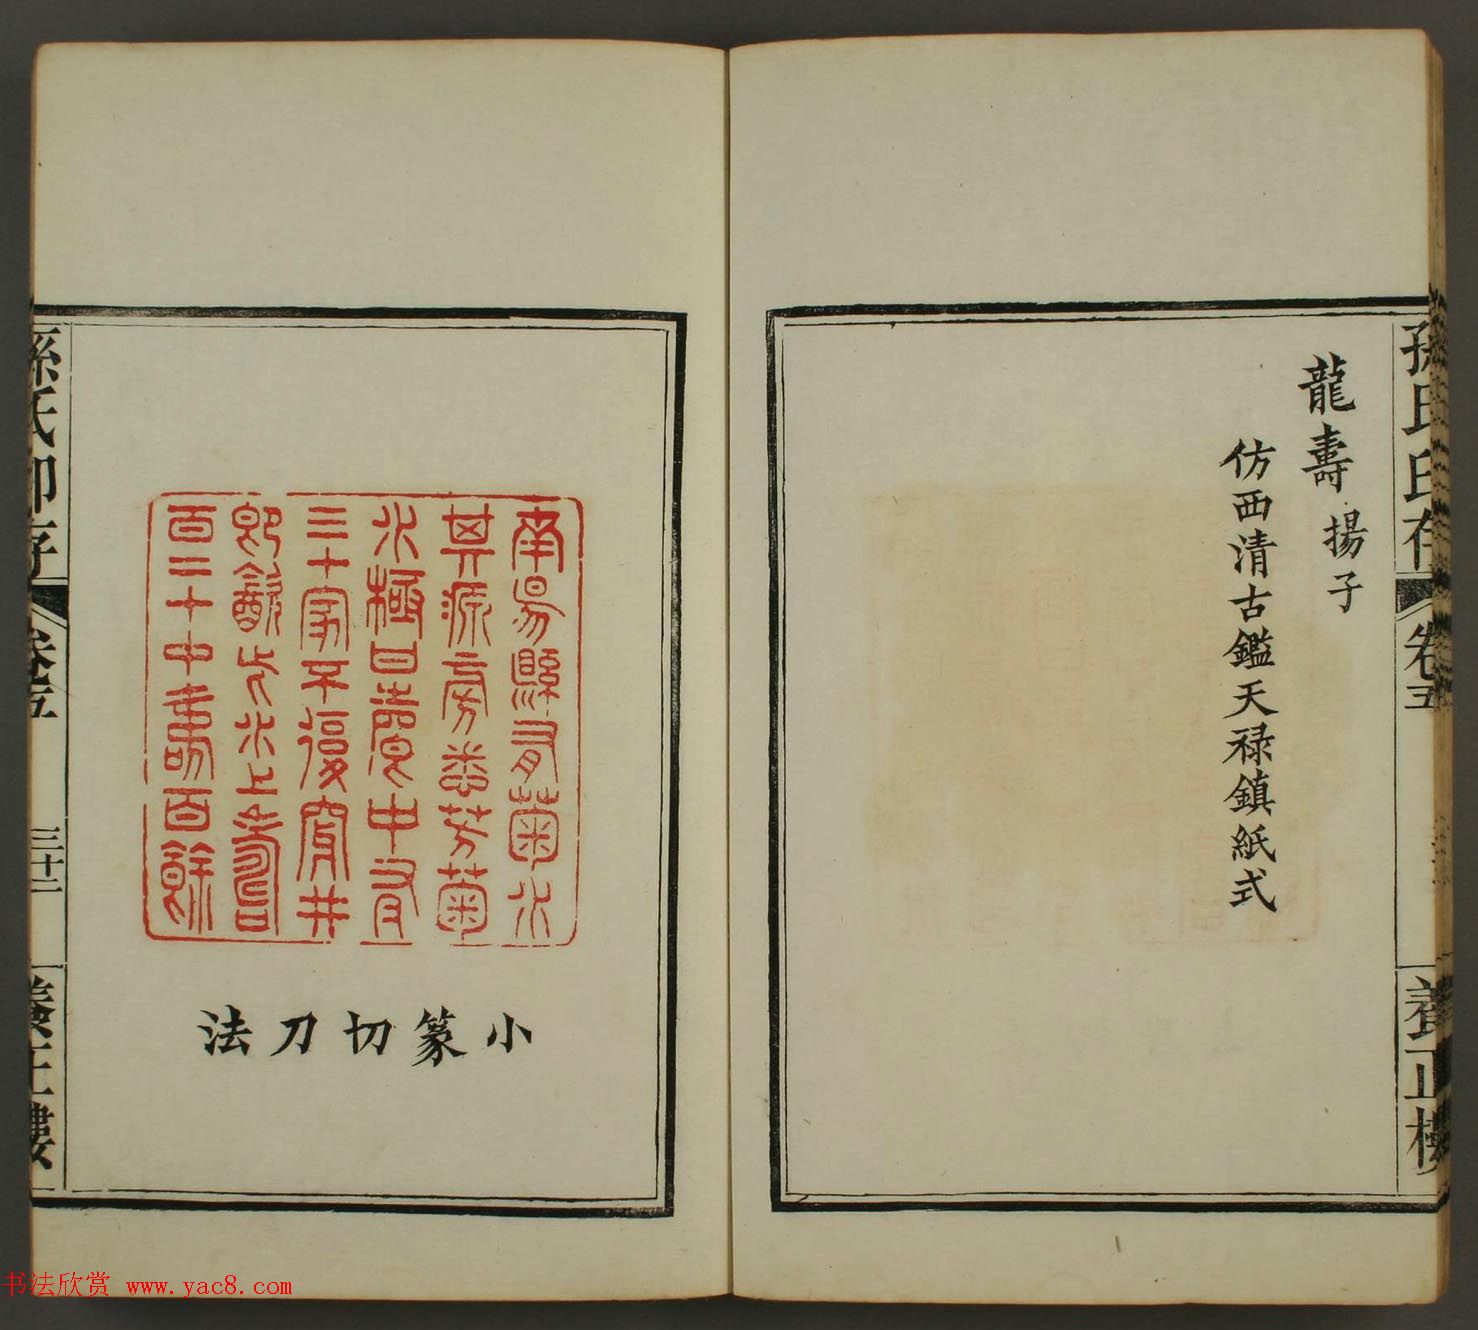 孫氏印存
卷五
養正樓
龍壽 揚子
仿西清古鑑天祿鎮紙式
南昜縣有菊水
其源旁悉芳菊
水極甘馨中有
三十家不復穿井
即飲此水上壽
百二十中壽百餘
小篆切刀法
孫氏印存
卷五
三十二
養正樓
书法欣赏 www.yac8.com